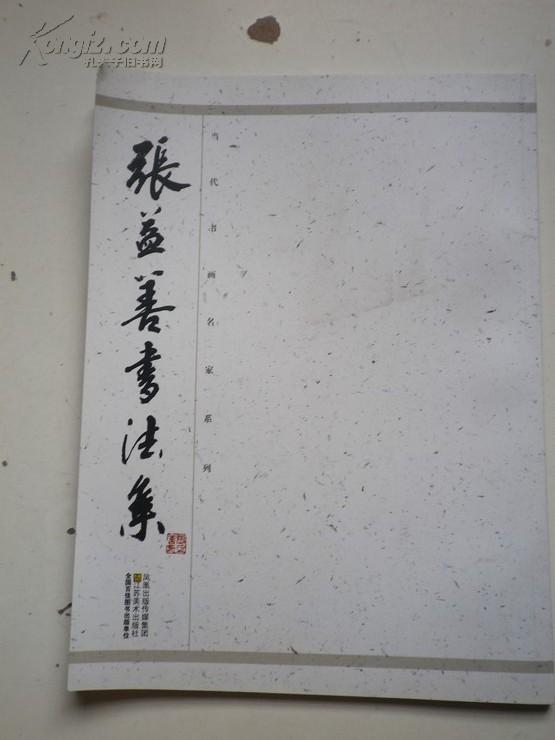 Kongfz.com
孔夫子旧书网
張益善書法集
当代书画名家系列
凤凰出版传媒集团
江苏美术出版社
全国百佳图书出版单位